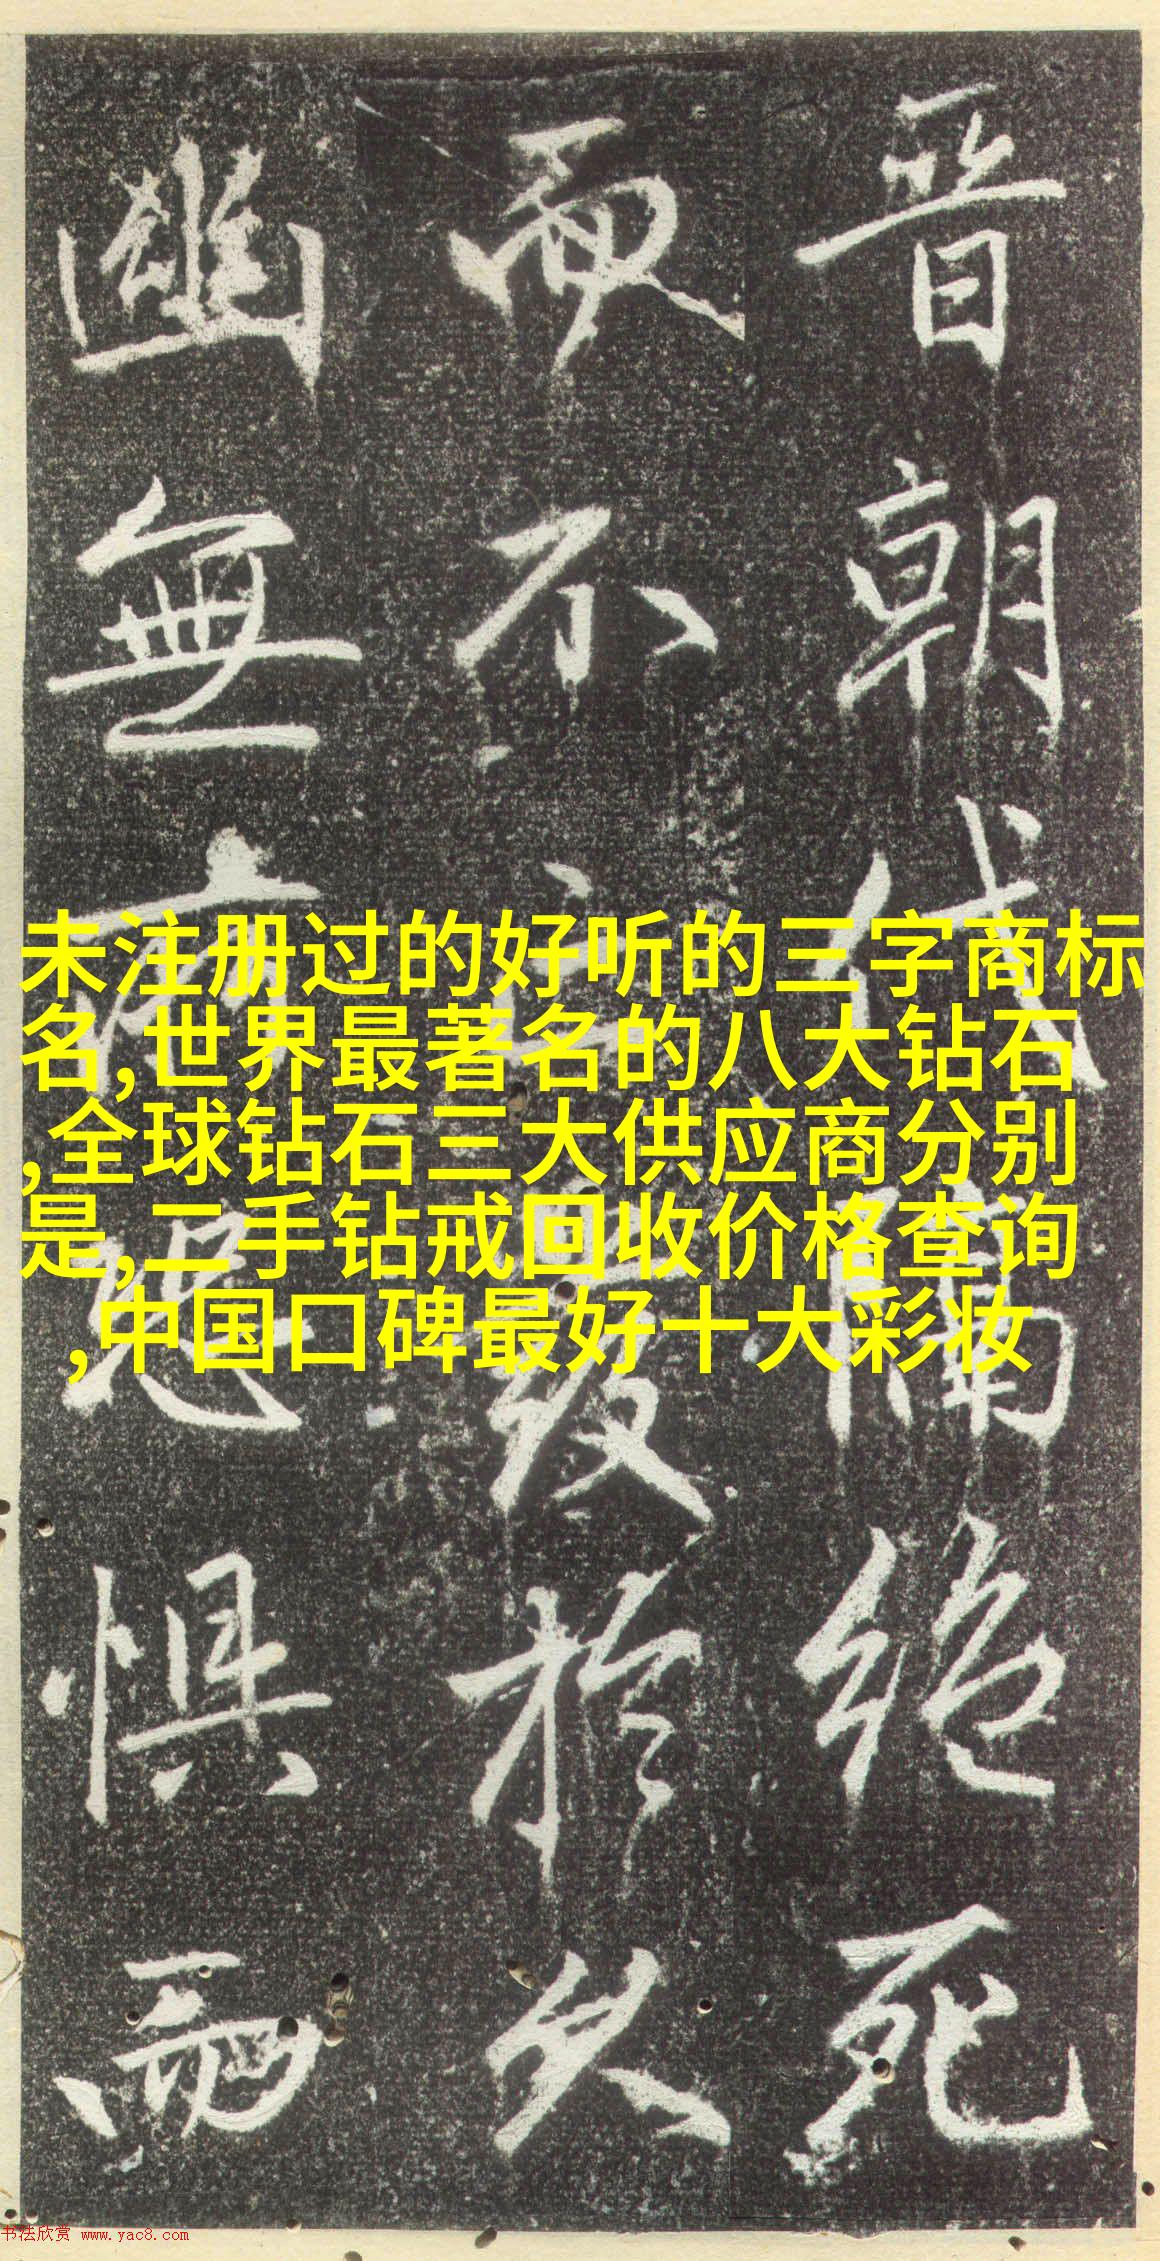 晉朝代隔絕死
而不於久
幽無懼而
未注册过的好听的三字商标
名,世界最著名的八大钻石
,全球钻石三大供应商分别
是,二手钻戒回收价格查询
,中国口碑最好十大彩妆
书法欣赏 www.yac8.com